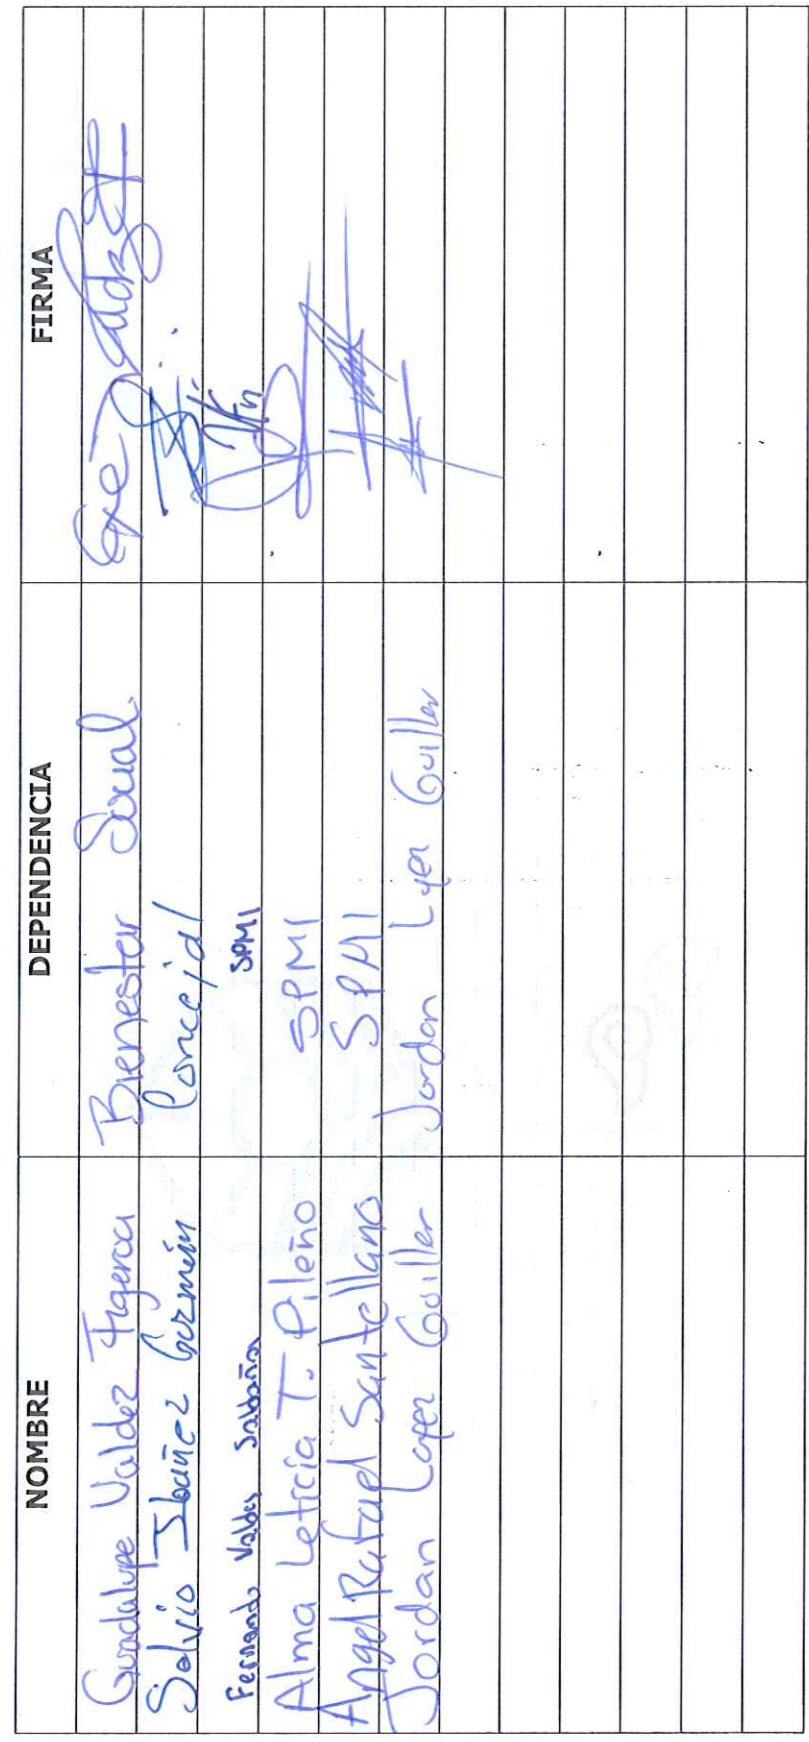 NOMBRE DEPENDENCIA FIRMA
Guadalupe Valdez Figeroa Bienestar Social
Salvio Ibañez Guzmán Concejal
Fernando Valdes Saldaña SPMI
Alma Leticia T. Pileño SPMI
Angel Rafael Santellano SPMI
Jordan Lopez Guiller Jordan Lopez Guiller